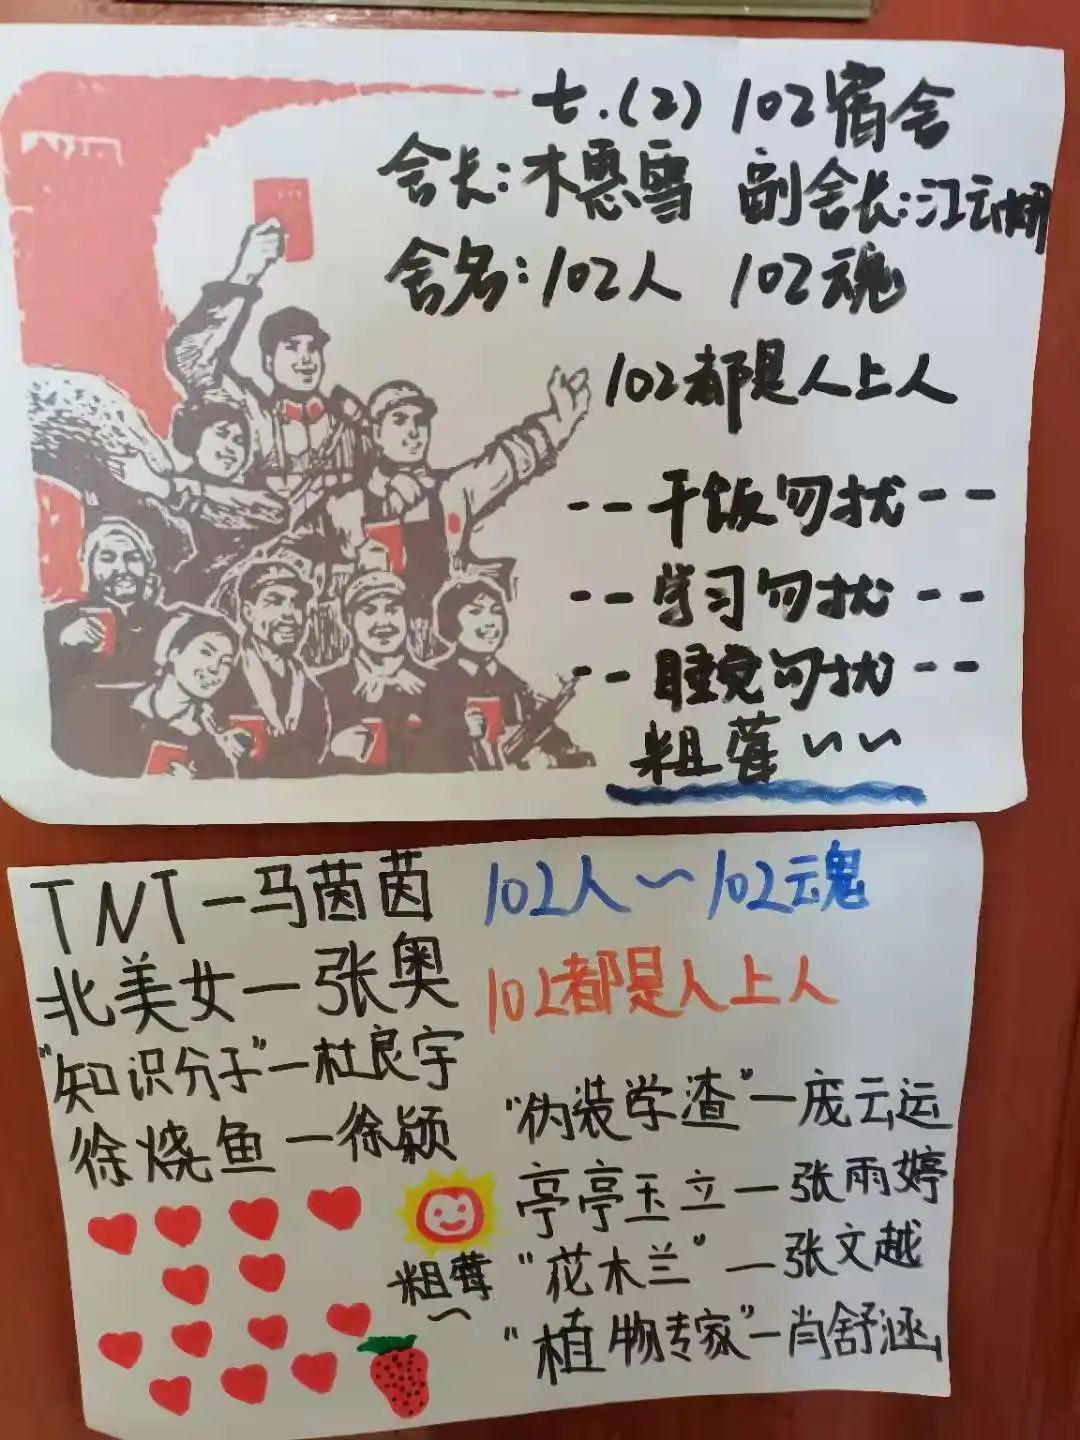 七.(2) 102宿舍
舍长:木惠雪 副舍长:江云娴
舍名:102人 102魂
102都是人上人
--干饭勿扰--
--学习勿扰--
--睡觉勿扰--
粗蕯~~
TNT—马茵茵
北美女—张奥
"知识分子"—杜良宇
徐烧鱼—徐颖
102人~102魂
102都是人上人
"伪装学渣"—庞云运
亭亭玉立—张雨婷
"花木兰"—张文越
"植物专家"—肖舒涵